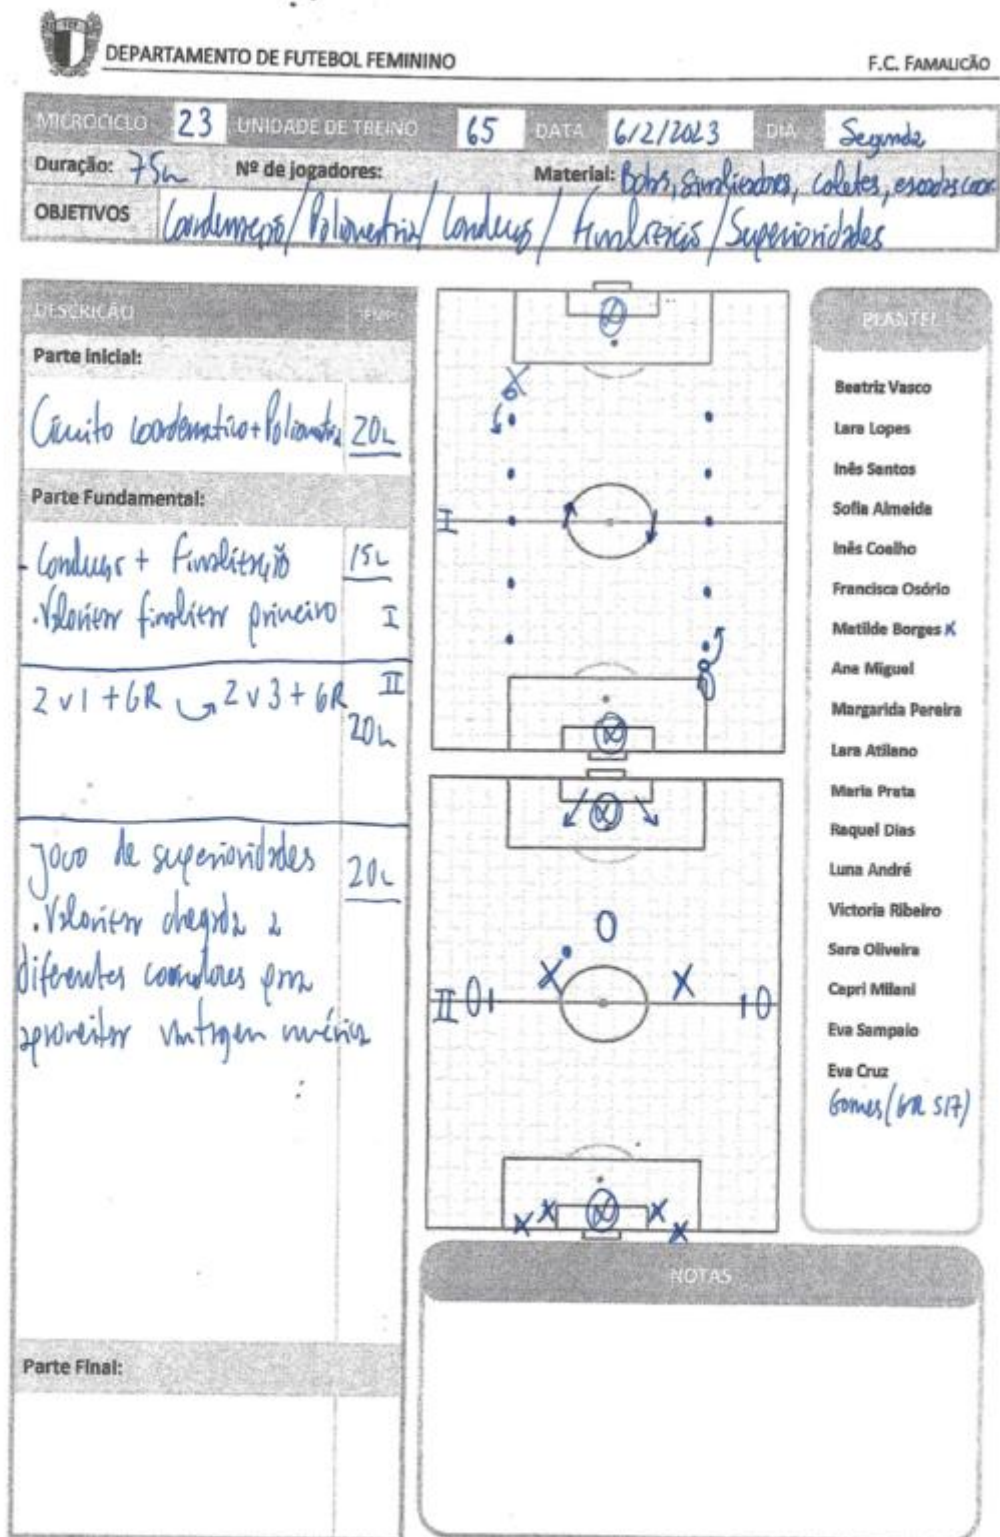 DEPARTAMENTO DE FUTEBOL FEMININO
F.C. FAMALICÃO
MICROCICLO 23 UNIDADE DE TREINO 65 DATA 6/2/2023 DIA Segunda
Duração: 75 Nº de jogadores: Material: Bolas, sinalizadores, coletes, escadas coor
OBJETIVOS Coordenação/Poliometria/Condução/Finalização/Superioridades
DESCRIÇÃO
Parte inicial:
Circuito coordenativo+Poliometria 20
Parte Fundamental:
- Condução + Finalização 15
. Valorizar finalizar primeiro I
2v1+GR 2v3+GR II
20
Jogo de superioridades 20
. Valorizar chegada a
diferentes corredores para
aproveitar vantagem numérica
Parte Final:
I
II
PLANTEL
Beatriz Vasco
Lara Lopes
Inês Santos
Sofia Almeida
Inês Coelho
Francisca Osório
Matilde Borges X
Ana Miguel
Margarida Pereira
Lara Atilano
Maria Prata
Raquel Dias
Luna André
Victoria Ribeiro
Sara Oliveira
Capri Milani
Eva Sampaio
Eva Cruz
Gomes (GR S17)
NOTAS